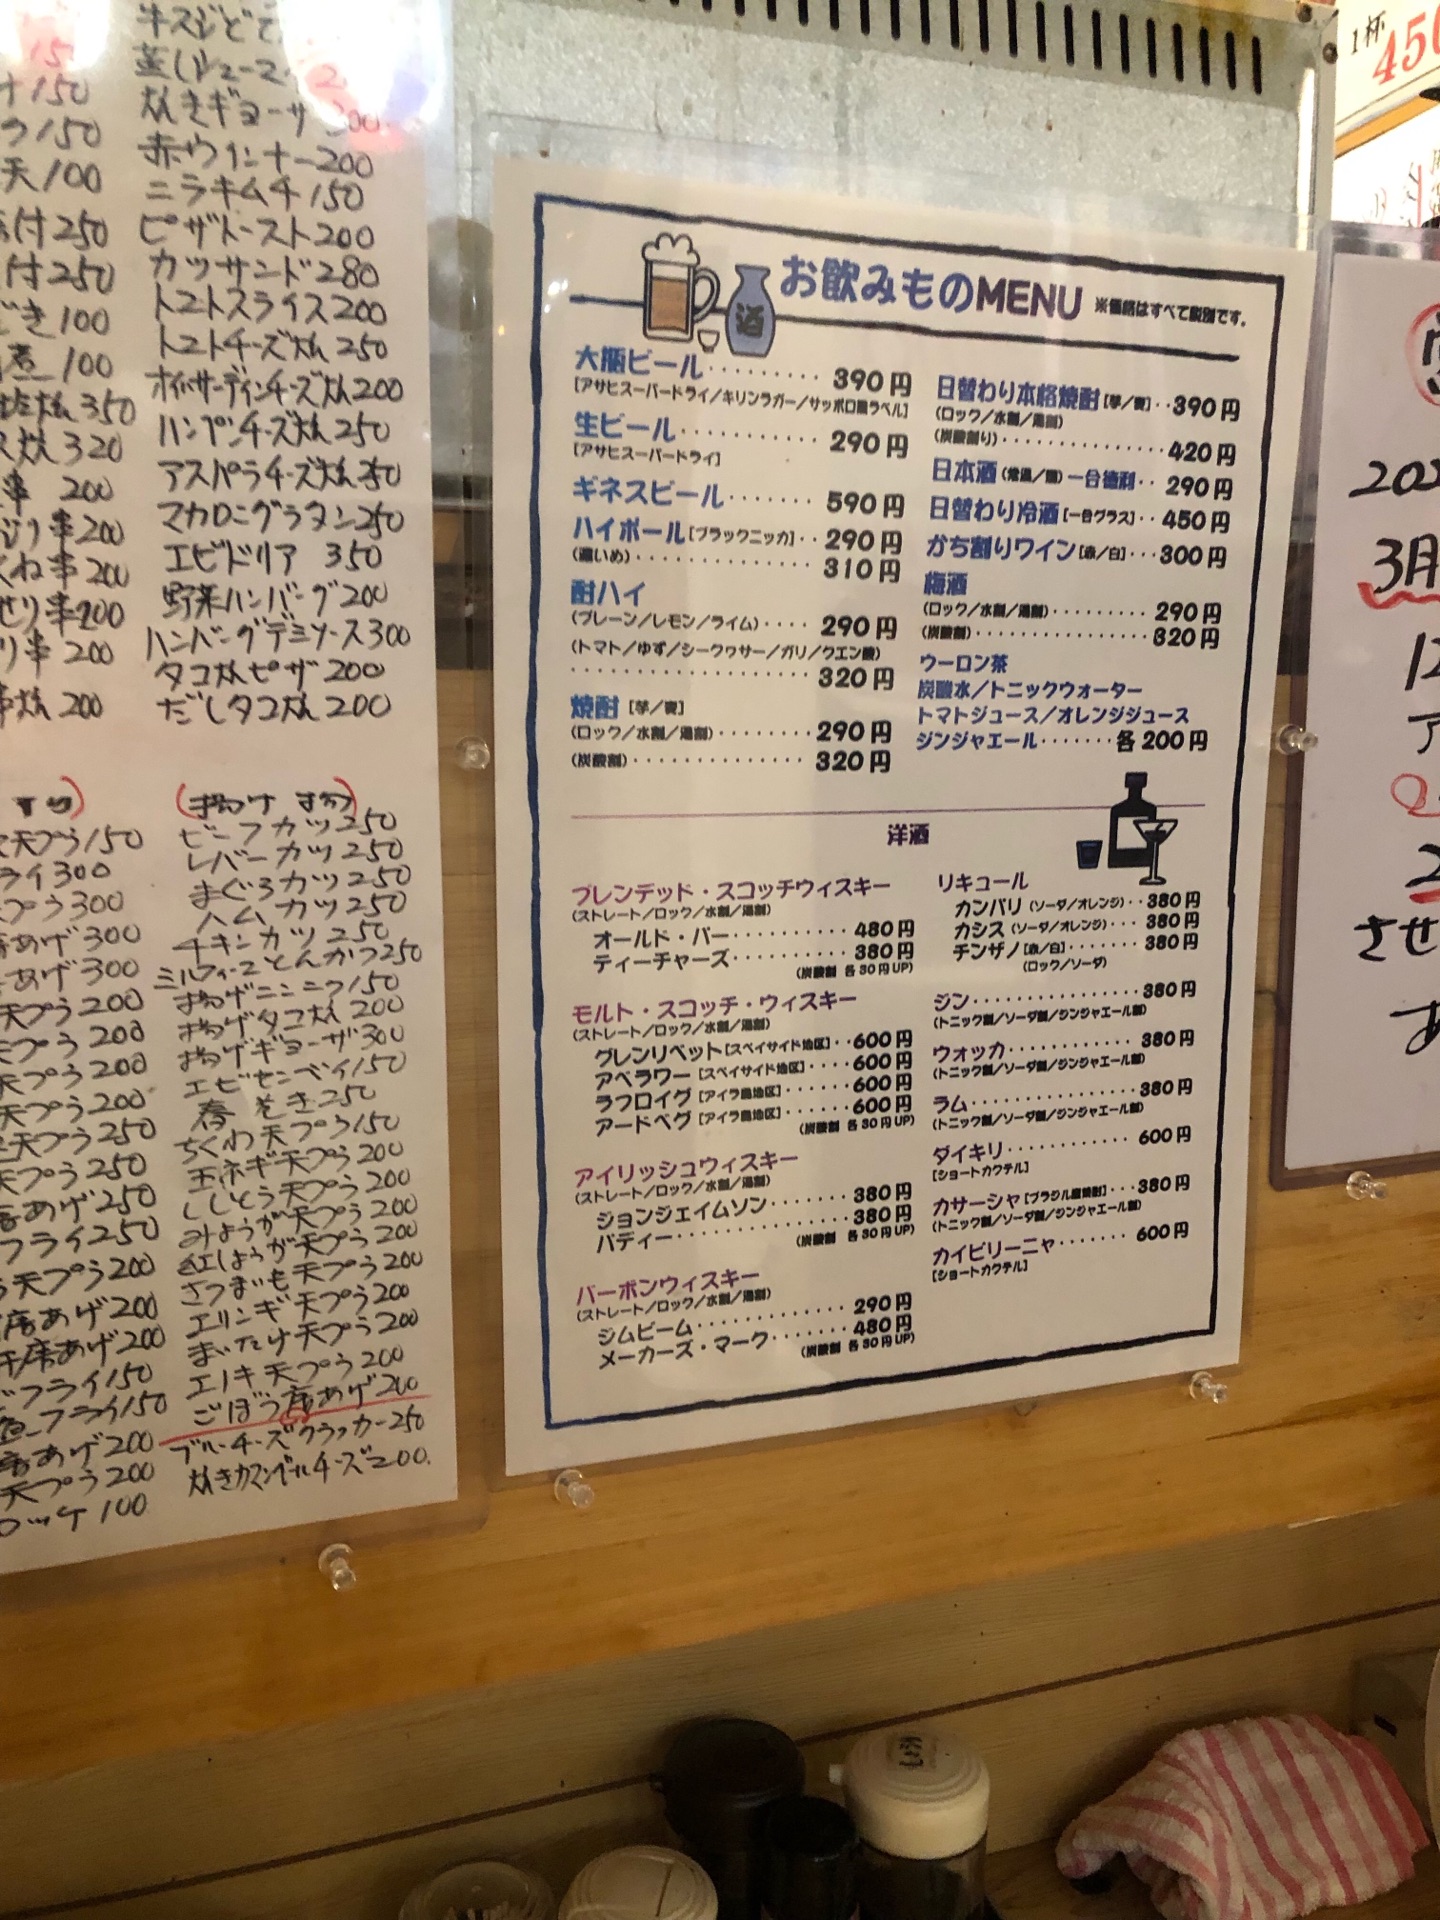 牛スジど
蒸しシューマイ
炊きギョーザ 300
赤ウインナー200
ニラキムチ150
ピザトースト200
カツサンド280
トマトスライス200
トマトチーズ焼 250
オイルサーディンチーズ焼200
ハンペンチーズ焼250
アスパラチーズ焼
マカロニグラタン250
エビドリア 350
野菜ハンバーグ200
ハンバーグデミソース300
タコ焼ピザ200
だしタコ焼200
150
150
天100
付250
付250
き100
煮 100
焼350
焼320
串 200
串200
くね串200
串200
串200
串焼200
(揚げ物)
ビーフカツ250
レバーカツ250
まぐろカツ250
ハムカツ250
チキンカツ250
ミルフィーユとんかつ250
揚げニンニク150
揚げタコ焼200
揚げギョーザ300
エビセンベイ150
春巻き250
ちくわ天プラ150
玉ネギ天プラ200
ししとう天プラ200
みょうが天プラ200
紅しょうが天プラ200
さつまいも天プラ200
エリンギ天プラ200
まいたけ天プラ200
エノキ天プラ200
ごぼう唐あげ200
ブルーチーズクラッカー250
焼きカマンベールチーズ200
天プラ150
ライ300
プラ300
あげ300
あげ300
天プラ200
天プラ200
天プラ200
天プラ200
天プラ250
天プラ250
あげ250
フライ250
天プラ200
唐あげ200
唐あげ200
フライ150
フライ150
あげ200
天プラ200
ロッケ100
お飲みものMENU ※価格はすべて税別です。
大瓶ビール・・・・・・・・・390円
[アサヒスーパードライ/キリンラガー/サッポロ黒ラベル]
生ビール・・・・・・・・・・・290円
[アサヒスーパードライ]
ギネスビール・・・・・・・590円
ハイボール[ブラックニッカ]・・290円
(濃いめ)・・・・・・・・・・・・・310円
酎ハイ
(プレーン/レモン/ライム)・・・・290円
(トマト/ゆず/シークヮサー/ガリ/クエン酸)
・・・・・・・・・・・・・・・・・320円
焼酎[芋/麦]
(ロック/水割/湯割)・・・・・・・・290円
(炭酸割)・・・・・・・・・・・・・・320円
日替わり本格焼酎[芋/麦]・・390円
(ロック/水割/湯割)
(炭酸割り)・・・・・・・・・・・・・420円
日本酒(常温/燗)一合徳利・・290円
日替わり冷酒[一合グラス]・・450円
かち割りワイン[赤/白]・・・300円
梅酒
(ロック/水割/湯割)・・・・・・・・・290円
(炭酸割)・・・・・・・・・・・・・・320円
ウーロン茶
炭酸水/トニックウォーター
トマトジュース/オレンジジュース
ジンジャエール・・・・・・・各200円
洋酒
ブレンデッド・スコッチウィスキー
(ストレート/ロック/水割/湯割)
オールド・パー・・・・・・・・・・480円
ティーチャーズ・・・・・・・・・・380円
(炭酸割 各30円UP)
モルト・スコッチ・ウィスキー
(ストレート/ロック/水割/湯割)
グレンリベット[スペイサイド地区]・・600円
アベラワー[スペイサイド地区]・・・・600円
ラフロイグ[アイラ島地区]・・・・・・600円
アードベグ[アイラ島地区]・・・・・・600円
(炭酸割 各30円UP)
アイリッシュウィスキー
(ストレート/ロック/水割/湯割)
ジョンジェイムソン・・・・・・・・380円
パディー・・・・・・・・・・・・・380円
(炭酸割 各30円UP)
バーボンウィスキー
(ストレート/ロック/水割/湯割)
ジムビーム・・・・・・・・・・・・290円
メーカーズ・マーク・・・・・・・480円
(炭酸割 各30円UP)
リキュール
カンパリ(ソーダ/オレンジ)・・380円
カシス(ソーダ/オレンジ)・・・380円
チンザノ[赤/白]・・・・・・・380円
(ロック/ソーダ)
ジン・・・・・・・・・・・・・・・・380円
(トニック割/ソーダ割/ジンジャエール割)
ウォッカ・・・・・・・・・・・・380円
(トニック割/ソーダ割/ジンジャエール割)
ラム・・・・・・・・・・・・・・・380円
(トニック割/ソーダ割/ジンジャエール割)
ダイキリ・・・・・・・・・・・・600円
[ショートカクテル]
カサーシャ[ブラジル産焼酎]・・・380円
(トニック割/ソーダ割/ジンジャエール割)
カイピリーニャ・・・・・・・600円
[ショートカクテル]
酒
1杯
450
3月
12
させ
しょうゆ